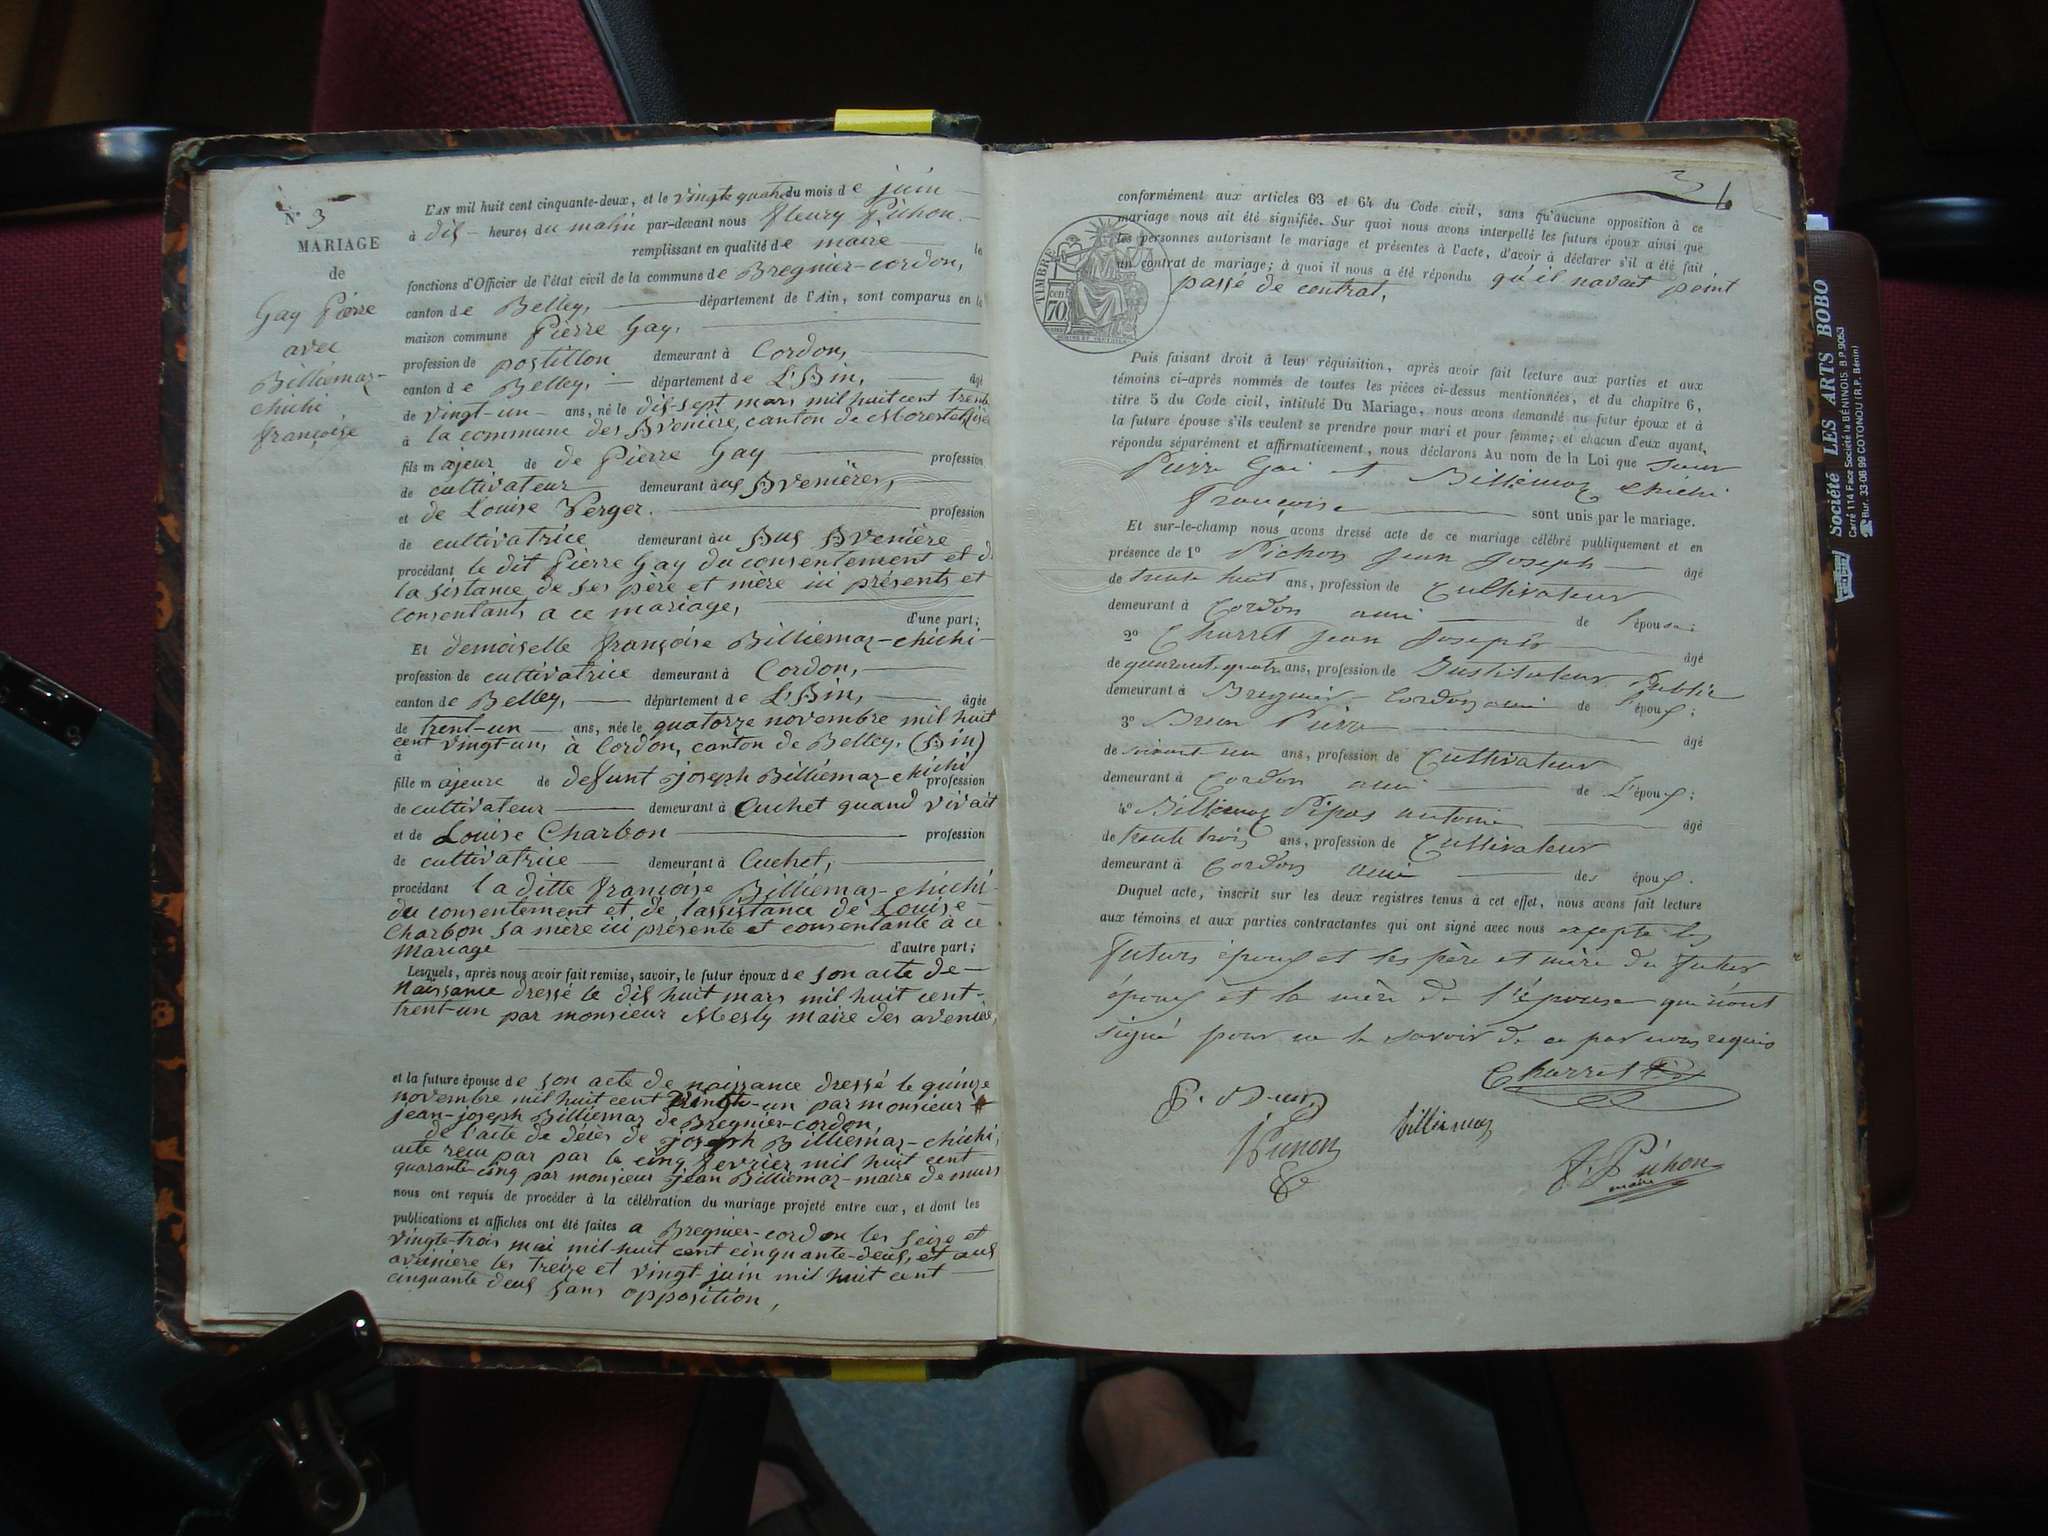 N° 3
MARIAGE
de
Gay Pierre
avec
Billiemaz-
chichi
françoise
L'AN mil huit cent cinquante-deux, et le vingte quatre du mois de juin
à dis heures du matin par-devant nous fleury Pichon
remplissant en qualité de maire le
fonctions d'Officier de l'état civil de la commune de Bregnier-cordon,
canton de Belley, département de l'Ain, sont comparus en la
maison commune Pierre Gay,
profession de postillon demeurant à Cordon,
canton de Belley, département de L'Ain, âgé
de vingt-un ans, né le dis-sept mars mil huit cent trente
à la commune des Avenière, canton de Morestel
fils majeur de de Pierre Gay profession
de cultivateur demeurant aus Avenières,
et de Louise Verger. profession
de cultivatrice demeurant au Aus Avenière
procédant le dit Pierre Gay du consentement et d
la sistance de ses père et mère ici présents et
consentants a ce mariage, d'une part;
Et demoiselle françoise Billiemaz-chichi
profession de cultivatrice demeurant à Cordon,
canton de Belley, département de L'Ain, âgée
de trent-un ans, née le quatorze novembre mil huit
cent vingt-un, à Cordon, canton de Belley, (Ain)
à
fille majeure de defunt joseph Billiemaz-chichi profession
de cultivateur demeurant à Cuchet quand vivait
et de Louise Charbon profession
de cultivatrice demeurant à Cuchet,
procédant la ditte françoise Billiemaz-chichi
du consentement et de l'assistance de Louise
Charbon sa mère ici présente et consentante à ce
Mariage d'autre part;
Lesquels, après nous avoir fait remise, savoir, le futur époux de son acte de
Naissance dressé le dis huit mars mil huit cent
trent-un par monsieur Mesly maire des avenière,
et la future épouse de son acte de naissance dressé le quinze
novembre mil huit cent vingte-un par monsieur
jean-joseph Billiemaz de Bregnier-cordon,
de l'acte de décès de joseph Billiemaz-chichi,
acte reçu par par le cinq fevrier mil huit cent
quarante-cinq par monsieur jean Billiemaz-maire de murs
nous ont requis de procéder à la célébration du mariage projeté entre eux, et dont les
publications et affiches ont été faites a Bregnier-cordon les seize et
vingte-trois mai mil-huit cent cinquante-deus, et aus
aveniere les treize et vingt juin mil huit cent
cinquante deus sans opposition,
3
conformément aux articles 63 et 64 du Code civil, sans qu'aucune opposition à ce
mariage nous ait été signifiée. Sur quoi nous avons interpellé les futurs époux ainsi que
les personnes autorisant le mariage et présentes à l'acte, d'avoir à déclarer s'il a été fait
un contrat de mariage; à quoi il nous a été répondu qu'il navait point
passé de contrat,
TIMBRE
70
Puis faisant droit à leur réquisition, après avoir fait lecture aux parties et aux
témoins ci-après nommés de toutes les pièces ci-dessus mentionnées, et du chapitre 6,
titre 5 du Code civil, intitulé Du Mariage, nous avons demandé au futur époux et à
la future épouse s'ils veulent se prendre pour mari et pour femme; et chacun d'eux ayant,
répondu séparément et affirmativement, nous déclarons Au nom de la Loi que
Pierre Gai et Billiemaz chichi
françoise sont unis par le mariage.
Et sur-le-champ nous avons dressé acte de ce mariage célébré publiquement et en
présence de 1° Pichon jean joseph âgé
de trente huit ans, profession de Cultivateur
demeurant à Cordon ami de l'épouse;
2° Charret jean joseph âgé
de quarante quatre ans, profession de Instituteur public
demeurant à Bregnier-Cordon ami de l'époux;
3° Brun Pierre âgé
de soixante un ans, profession de Cultivateur
demeurant à Cordon ami de L'époux;
4° Billiemaz Pipas antoine âgé
de trente trois ans, profession de Cultivateur
demeurant à Cordon ami des époux.
Duquel acte, inscrit sur les deux registres tenus à cet effet, nous avons fait lecture
aux témoins et aux parties contractantes qui ont signé avec nous excepté les
futurs époux et les père et mère du futur
époux et la mère de l'épouse qui n'ont
signé pour ne le savoir de ce par nous requis
Charret
P. Brun
Billiemaz
Pichon
F. Pichon
maire
Société LES ARTS BOBO
Carré 114 Face Société la BÉNINOIS B.P. 9053
Bur. 33-06 99 COTONOU (R.P. Bénin)